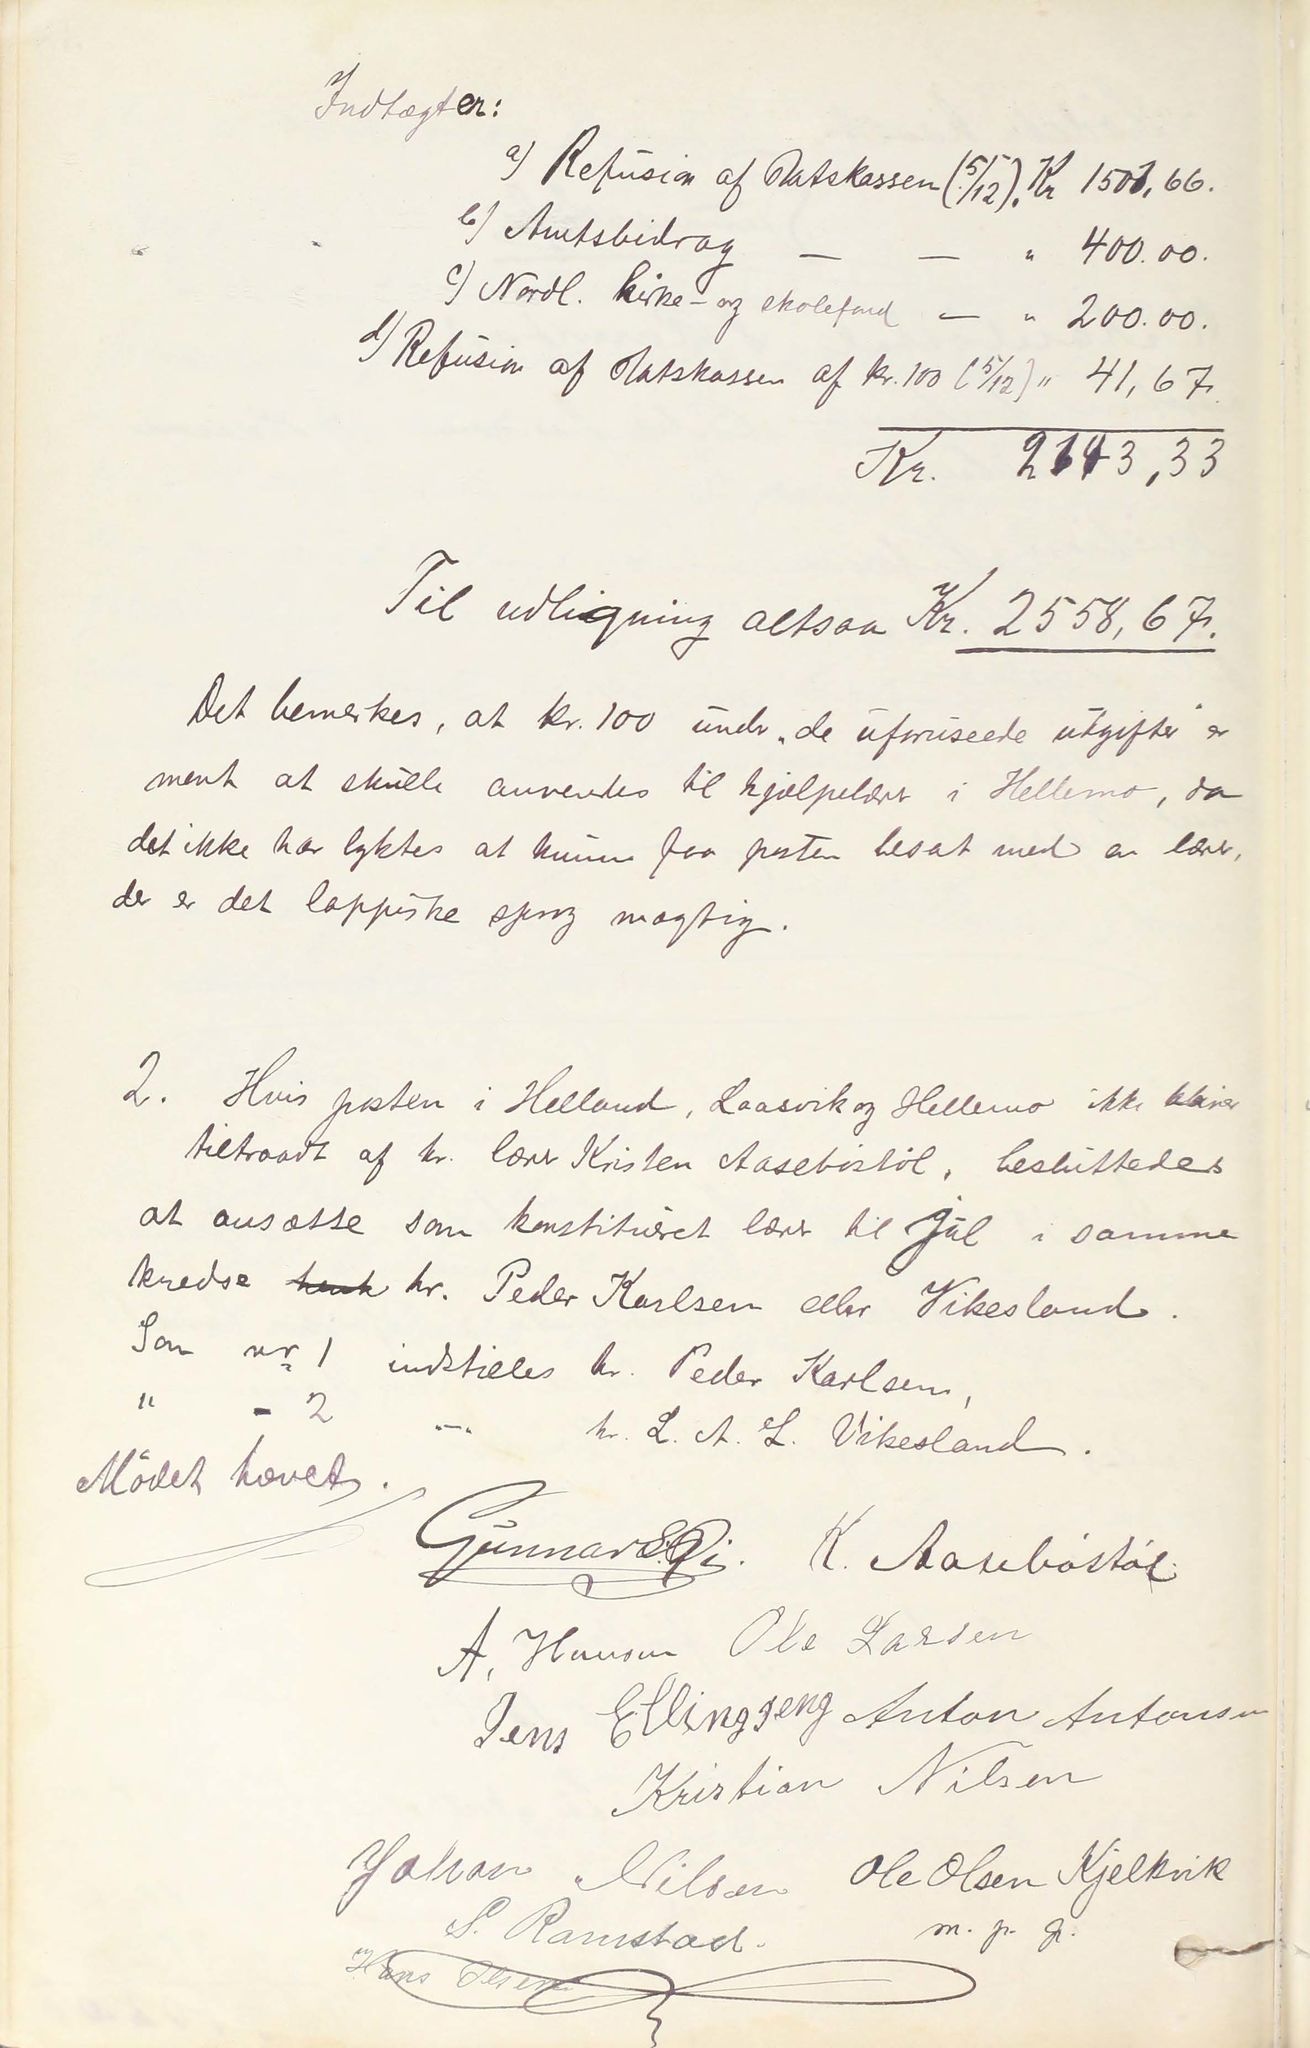 Indtægter:
a) Refusion af Statskassen (5/12). Kr 1501,66.
b) Amtsbidrag — — " 400.00.
c) Nordl. kirke- og skolefond — " 200.00.
d) Refusion af Statskassen af kr. 100 (5/12) " 41,67.
Kr. 2143,33
Til udligning altsaa Kr. 2558,67.
Det bemerkes, at kr. 100 under "de uforuseede utgifter" er
ment at skulle anvendes til hjælpelærer i Hellemo, da
det ikke har lyktes at kunne faa posten besat med en lærer,
der er det lappiske sprog mægtig.
2. Hvis posten i Helland, Laasvik og Hellemo ikke bliver
tiltraadt af hr. lærer Kristen Aasebøstøl, besluttedes
at ansætte som konstitueret lærer til jul i samme
kredse hr. Peder Karlsen eller Vikesland.
Som nr 1 indstilles hr. Peder Karlsen,
" - 2 -"- hr. L. A. L. Vikesland.
Mödet hævet.
Gunnar S. Qi. K. Aasebøstøl.
A. Hansen Ole Larsen
Jens Ellingseng Anton Antonsen
Kristian Nilsen
Johan Nilsen Ole Olsen Kjelkvik
S. Ramstad. m. p. p.
Hans Olsen